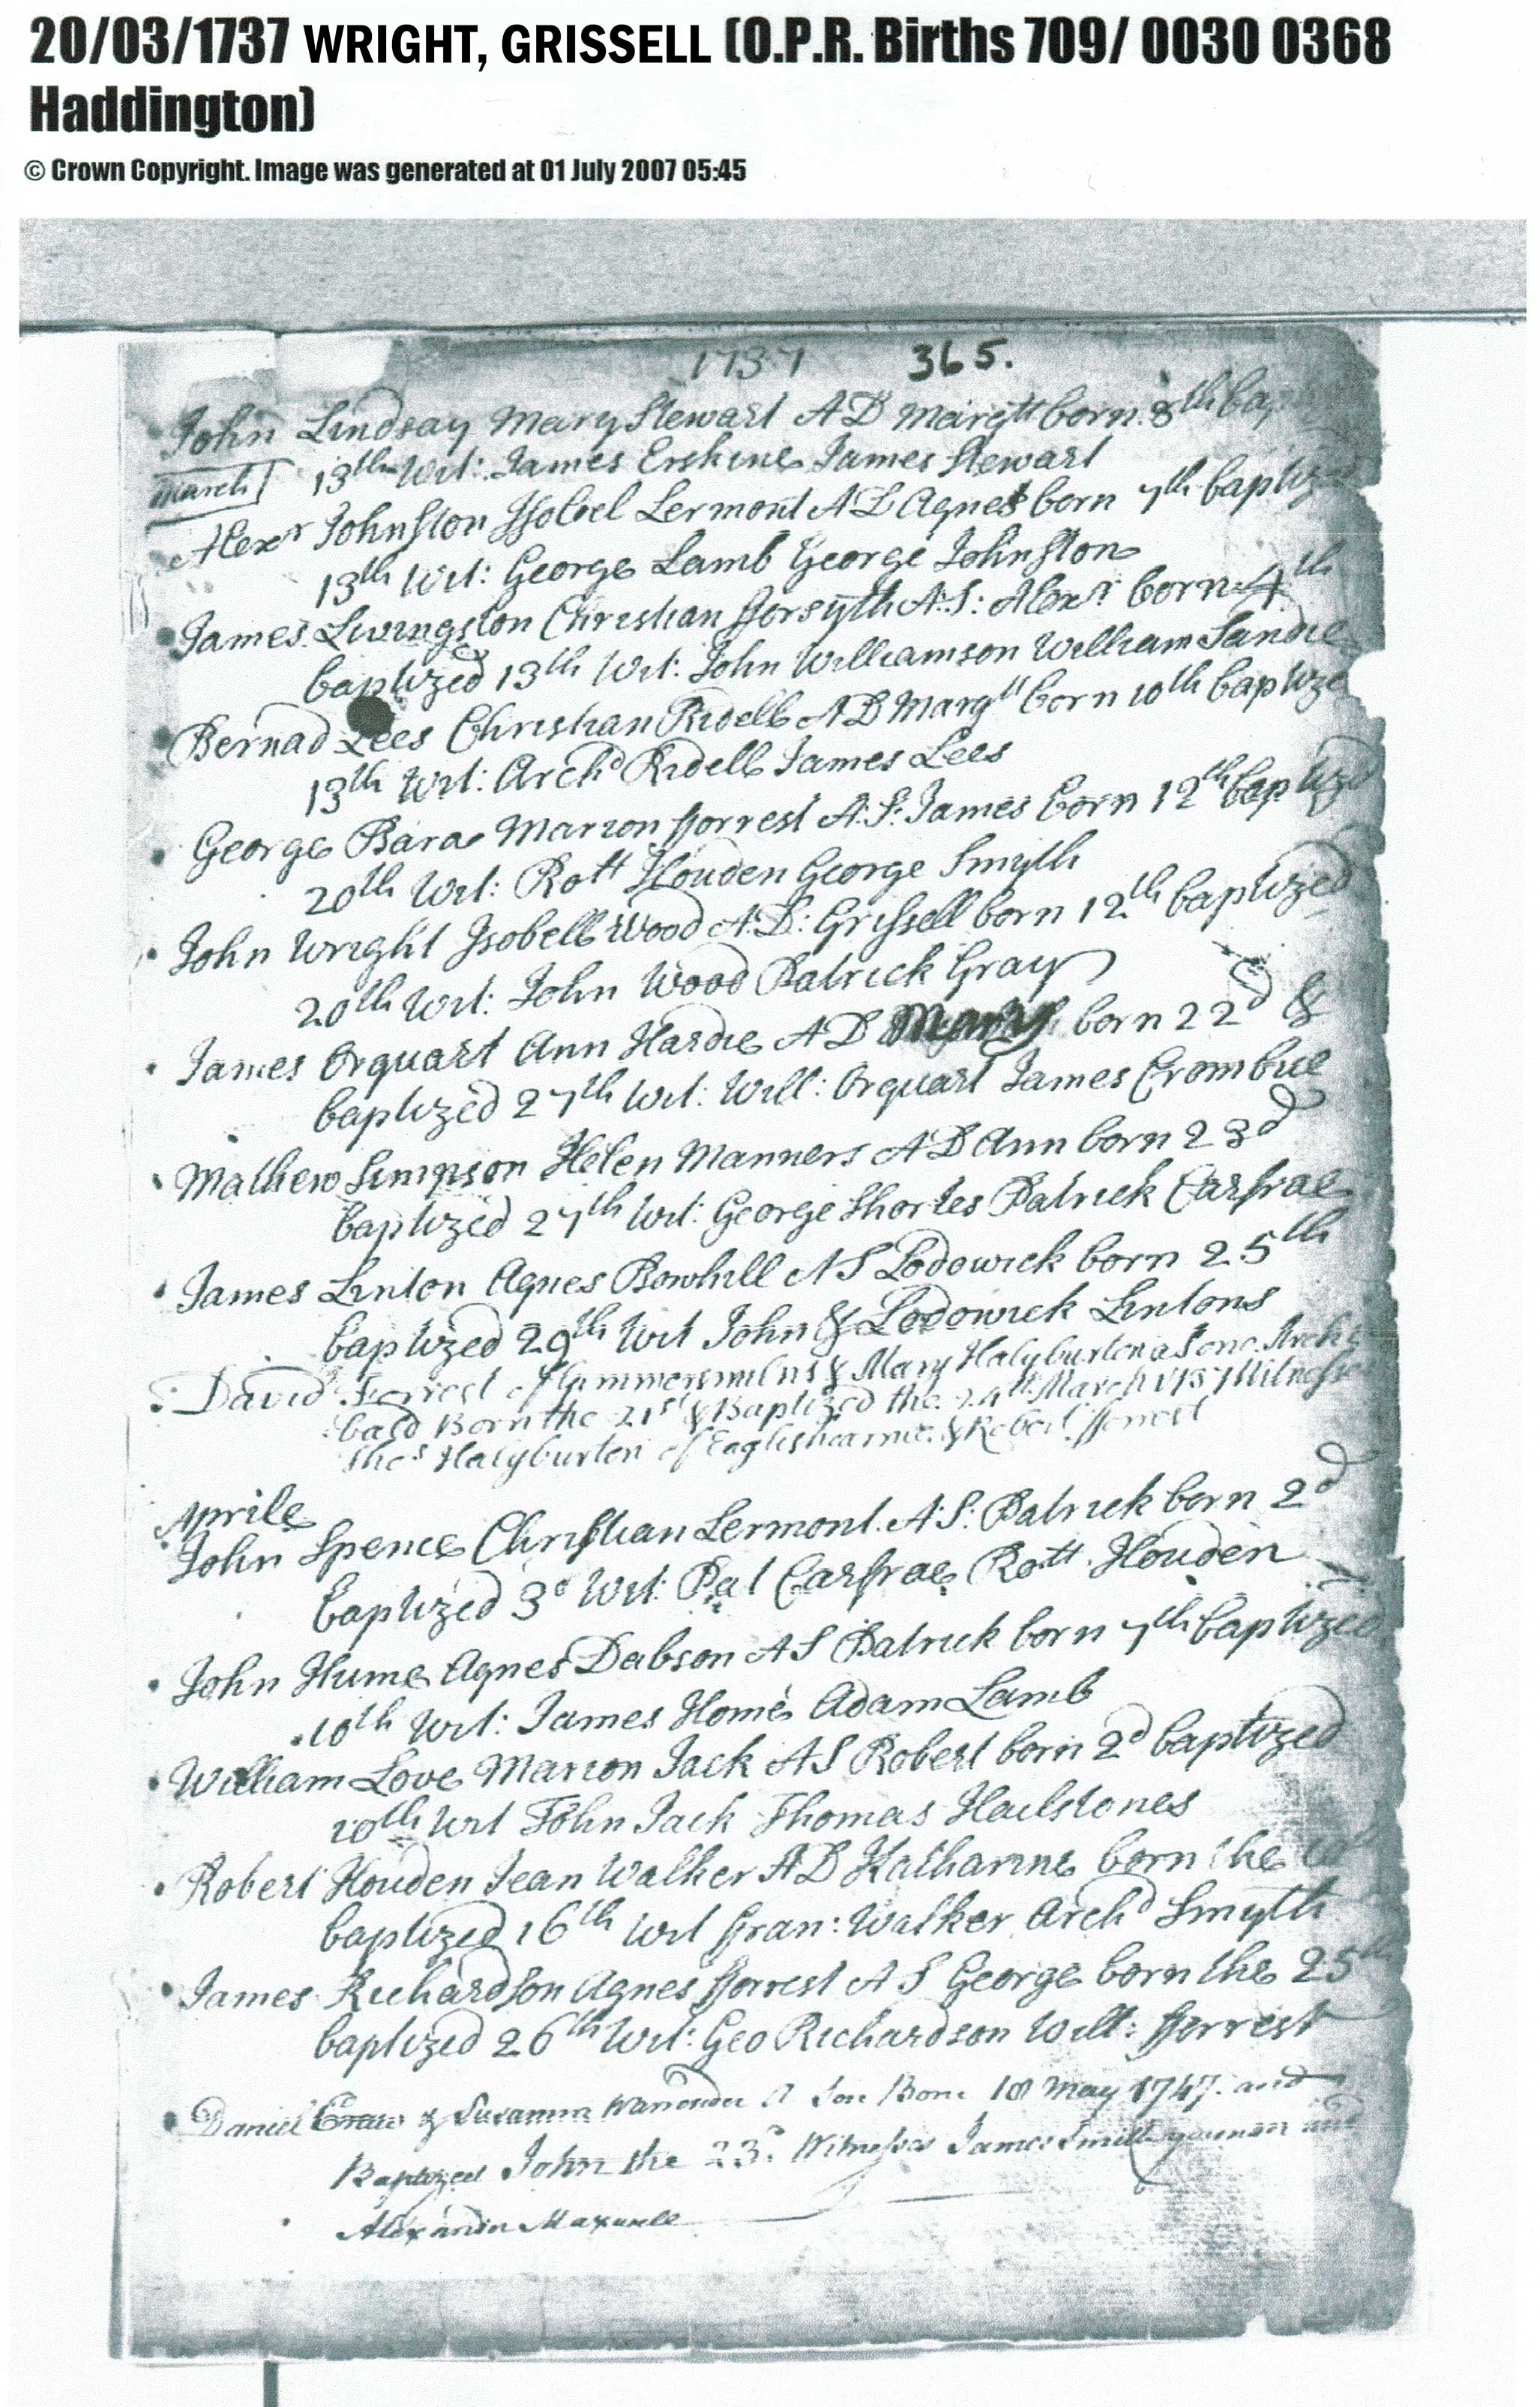 20/03/1737 WRIGHT, GRISSELL (O.P.R. Births 709/ 0030 0368
Haddington)
© Crown Copyright. Image was generated at 01 July 2007 05:45
1737 365.
John Lindsay Mary Stewart A D born 8th bap
March 13th Wit: James Erskine James Stewart
Alexr Johnston Issobel Lermont A D Agnes born 7th baptized
13th Wit: George Lamb George Johnston
James Livingston Christian fforsyth A: S: Alexr born 4th
baptized 13th Wit: John Williamson William Sandie
Bernad Lees Christian Ridell A D Margtt born 10th baptize
13th Wit: Archd Ridell James Lees
George Bara Marion fforrest A: S: James born 12th baptizd
20th Wit: Rott Houden George Smyth
John Wright Isobell Wood A: D: Grissell born 12th baptized
20th Wit: John Wood Patrick Gray
James Orquart Ann Hardie A D Mary born 22d &
baptized 27th Wit: Will: Orquart James Crombie
Mathew Simpson Helen Manners A D Ann born 23d
baptized 27th Wit: George Shortes Patrick Carfrae
James Linton Agnes Bowhill A S Lodowick born 25th
baptized 29th Wit John & Lodowick Lintons
David Forrest of Gimmersmilns & Mary Halyburton a Sone Archi
bald Born the 21st & Baptized the 24th March 1737 Witnesses
Thos Halyburton of Eaglishcarnie & Robert fforrest
Aprile
John Spence Christian Lermont A: S: Patrick born 2d
baptized 3d Wit: Pat Carfrae Rott Houden
John Hume Agnes Dabson A S Patrick born 7th baptized
10th Wit: James Home Adam Lamb
William Love Marion Jack A S Robert born 2d baptized
10th Wit John Jack Thomas Hailstones
Robert Houden Jean Walker A D Katharine born the 10th
baptized 16th Wit ffran: Walker Archd Smyth
James Richardson Agnes fforrest A S George born the 25th
baptized 26th Wit: Geo Richardson Will: fforrest
Daniel & Susanna A Son Born 18 May 1747 and
Baptized John the 23d Witnesses James Smith younger and
Alexander Maxwell